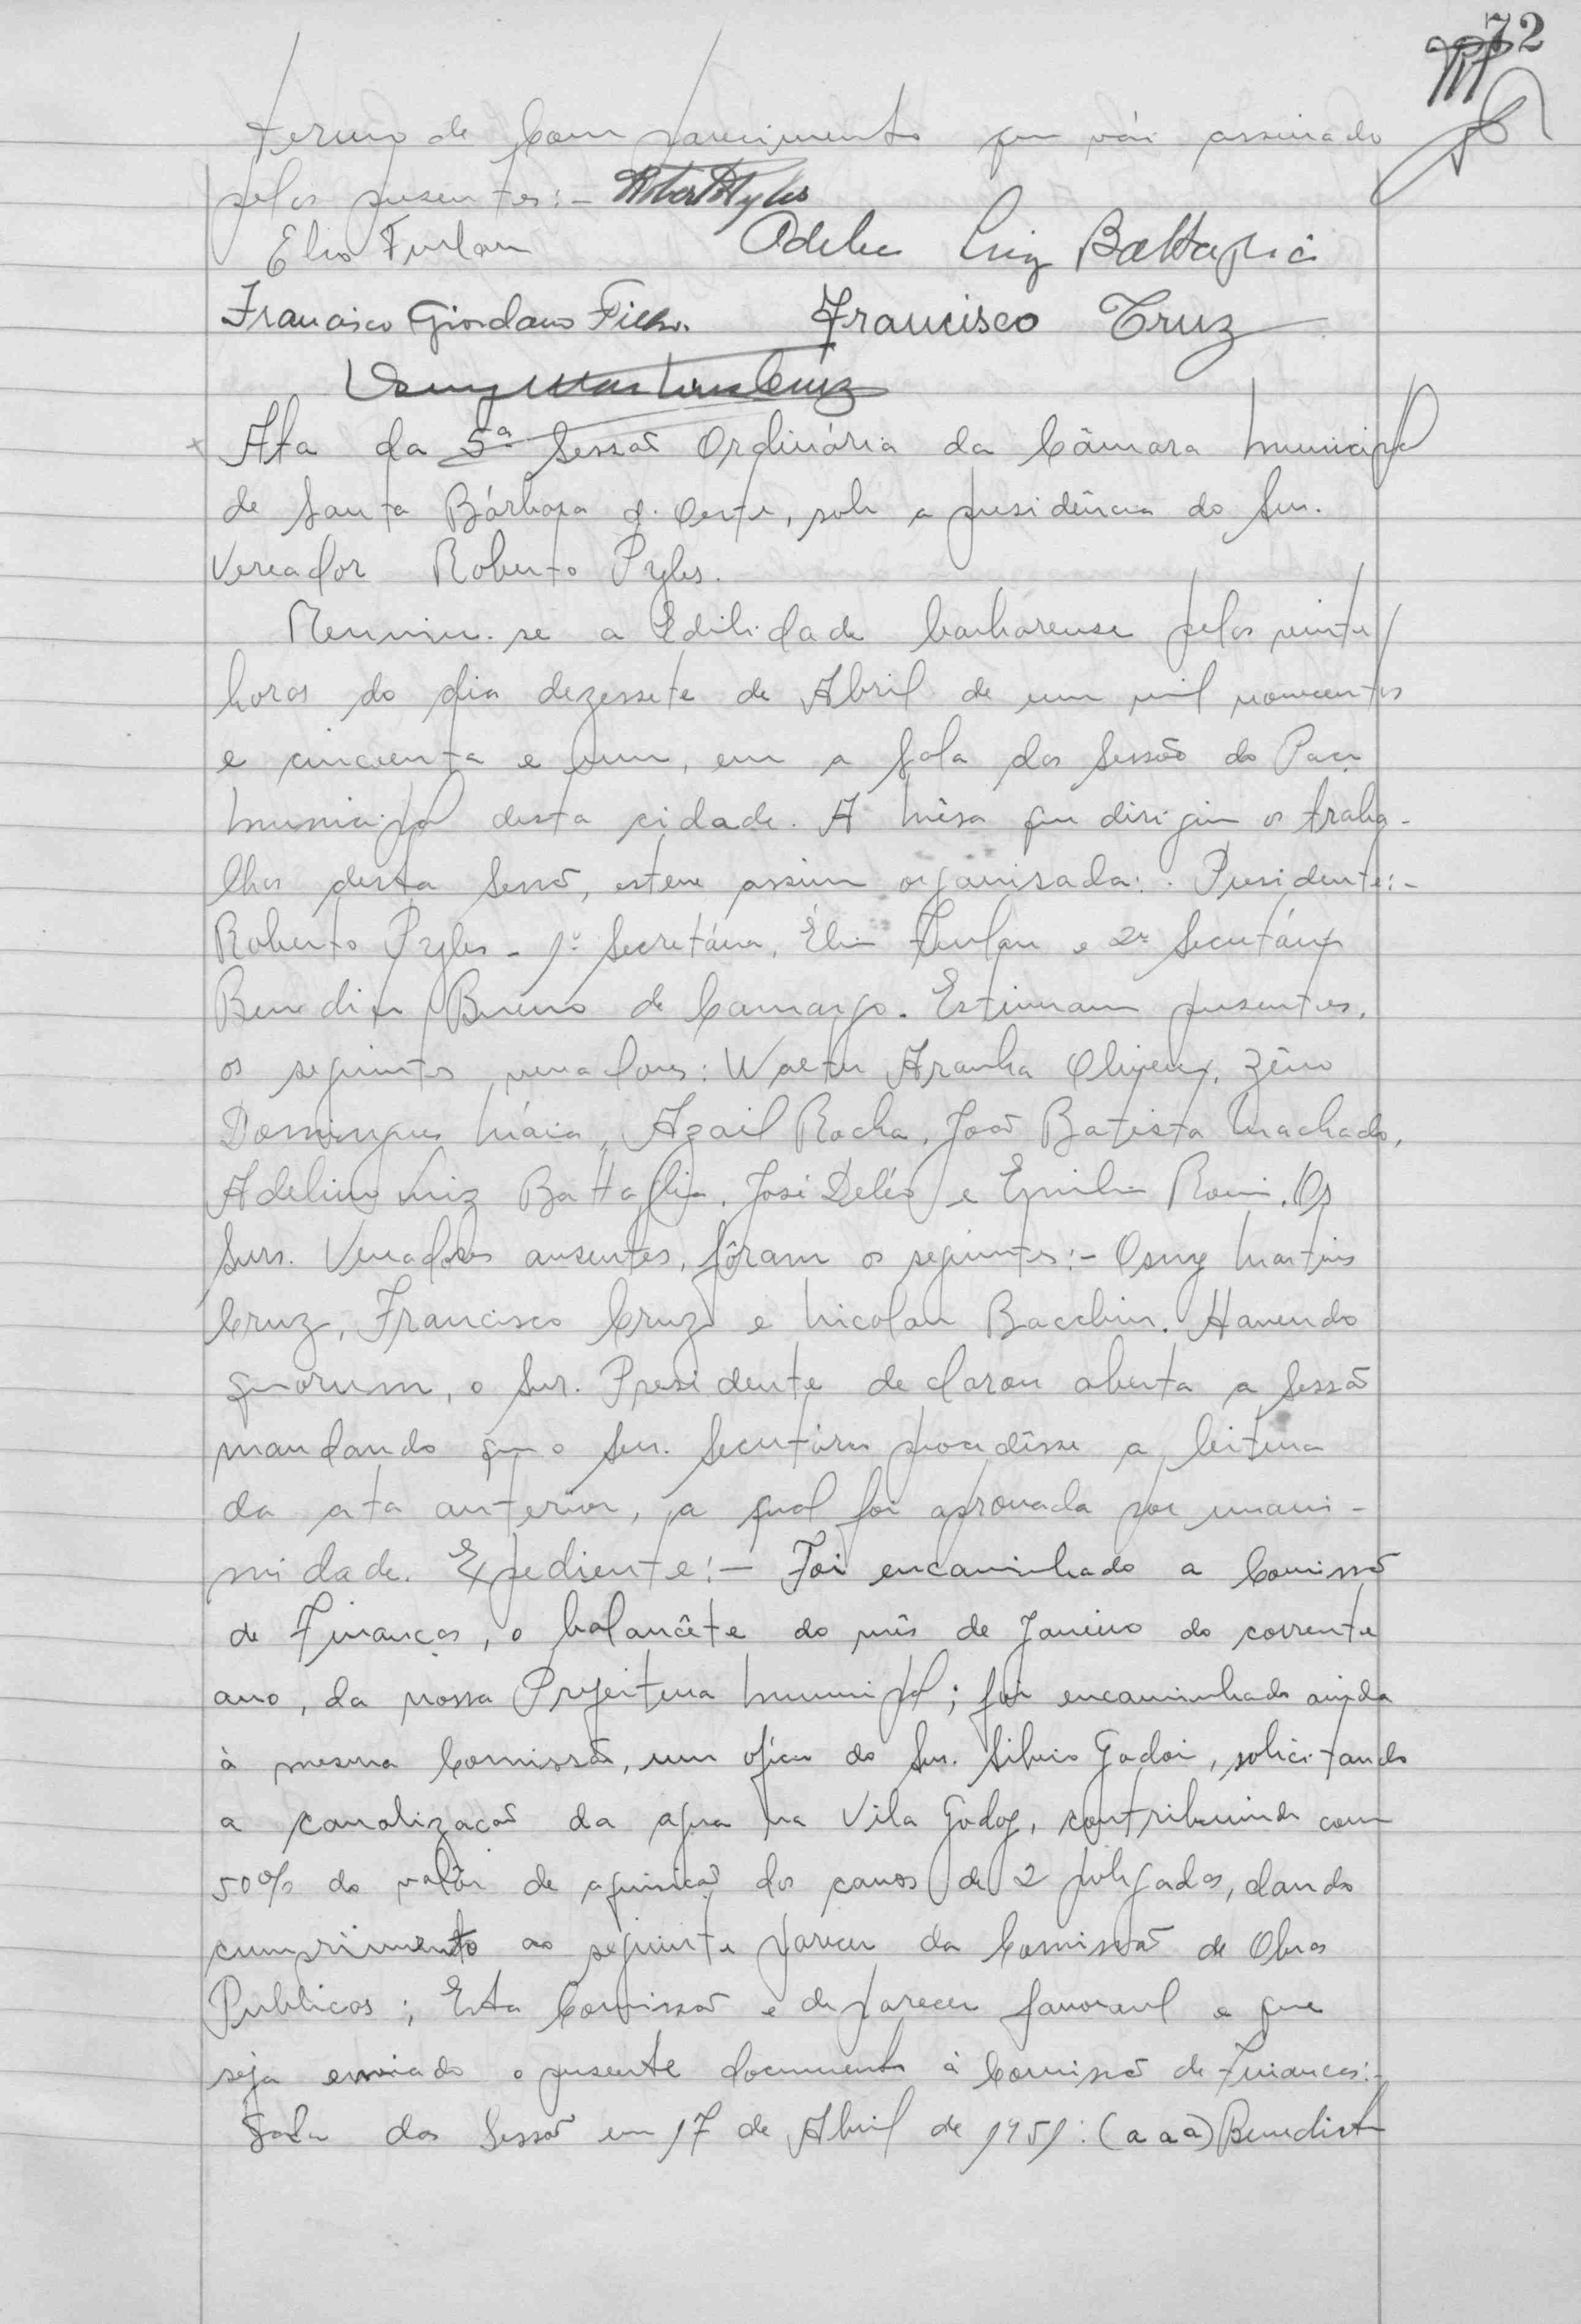 72
termo de Comparecimento que vái assinado
pelos presentes:-
Elio Furlan Adelino Luiz Battaglia
Francisco Giordano Filho. Francisco Cruz
Osmy Martins Cruz
Ata da 5ª Sessão Ordinária da Câmara Municipal
de Santa Bárbara d'Oeste, sob a presidência do Snr.
Vereador Roberto Pyles.
Reuniu-se a Edilidade barbarense pelas vinte
horas do dia dezessete de Abril de um mil novecentos
e cincoenta e um, em a Sala das Sessão do Paço
Municipal desta cidade. A Mêsa que dirigiu os traba-
lhos desta Sessão, esteve assim organisada:- Presidente:-
Roberto Pyles - 1º Secretário, Élio Furlan e 2º Secretário
Benedito Bueno de Camargo. Estiveram presentes,
os seguintes vereadores: Walter Aranha Oliveira, Zêno
Domingues Máia, Azail Rocha, João Batista Machado,
Adelino Luiz Battaglia, José Deléo e Emilio Romi. Os
Snrs. Vereadores ausentes, fôram os seguintes:- Osmy Martins
Cruz, Francisco Cruz e Nicolau Bacchin. Havendo
quorum, o Snr. Presidente declarou aberta a Sessão
mandando que o Snr. Secretário procedêsse a leitura
da ata anterior, a qual foi aprovada por unani-
midade. Expediente:- Foi encaminhado a Comissão
de Finanças, o balancête do mês de Janeiro do corrente
ano, da nossa Prefeitura Municipal; foi encaminhado ainda
à mesma Comissão, um ofício do Snr. Silvio Godoi, solicitando
a canalização da agua na Vila Godoy, contribuindo com
50% do valôr de aquisição dos canos de 2 polegadas, dando
cumprimento ao seguinte parecer da Comissão de Obras
Publicas; Esta Comissão é de parecer favoravel a que
seja enviado o presente documento à Comissão de Finanças:-
Sala das Sessão em 17 de Abril de 1951: (a a a) Benedicto